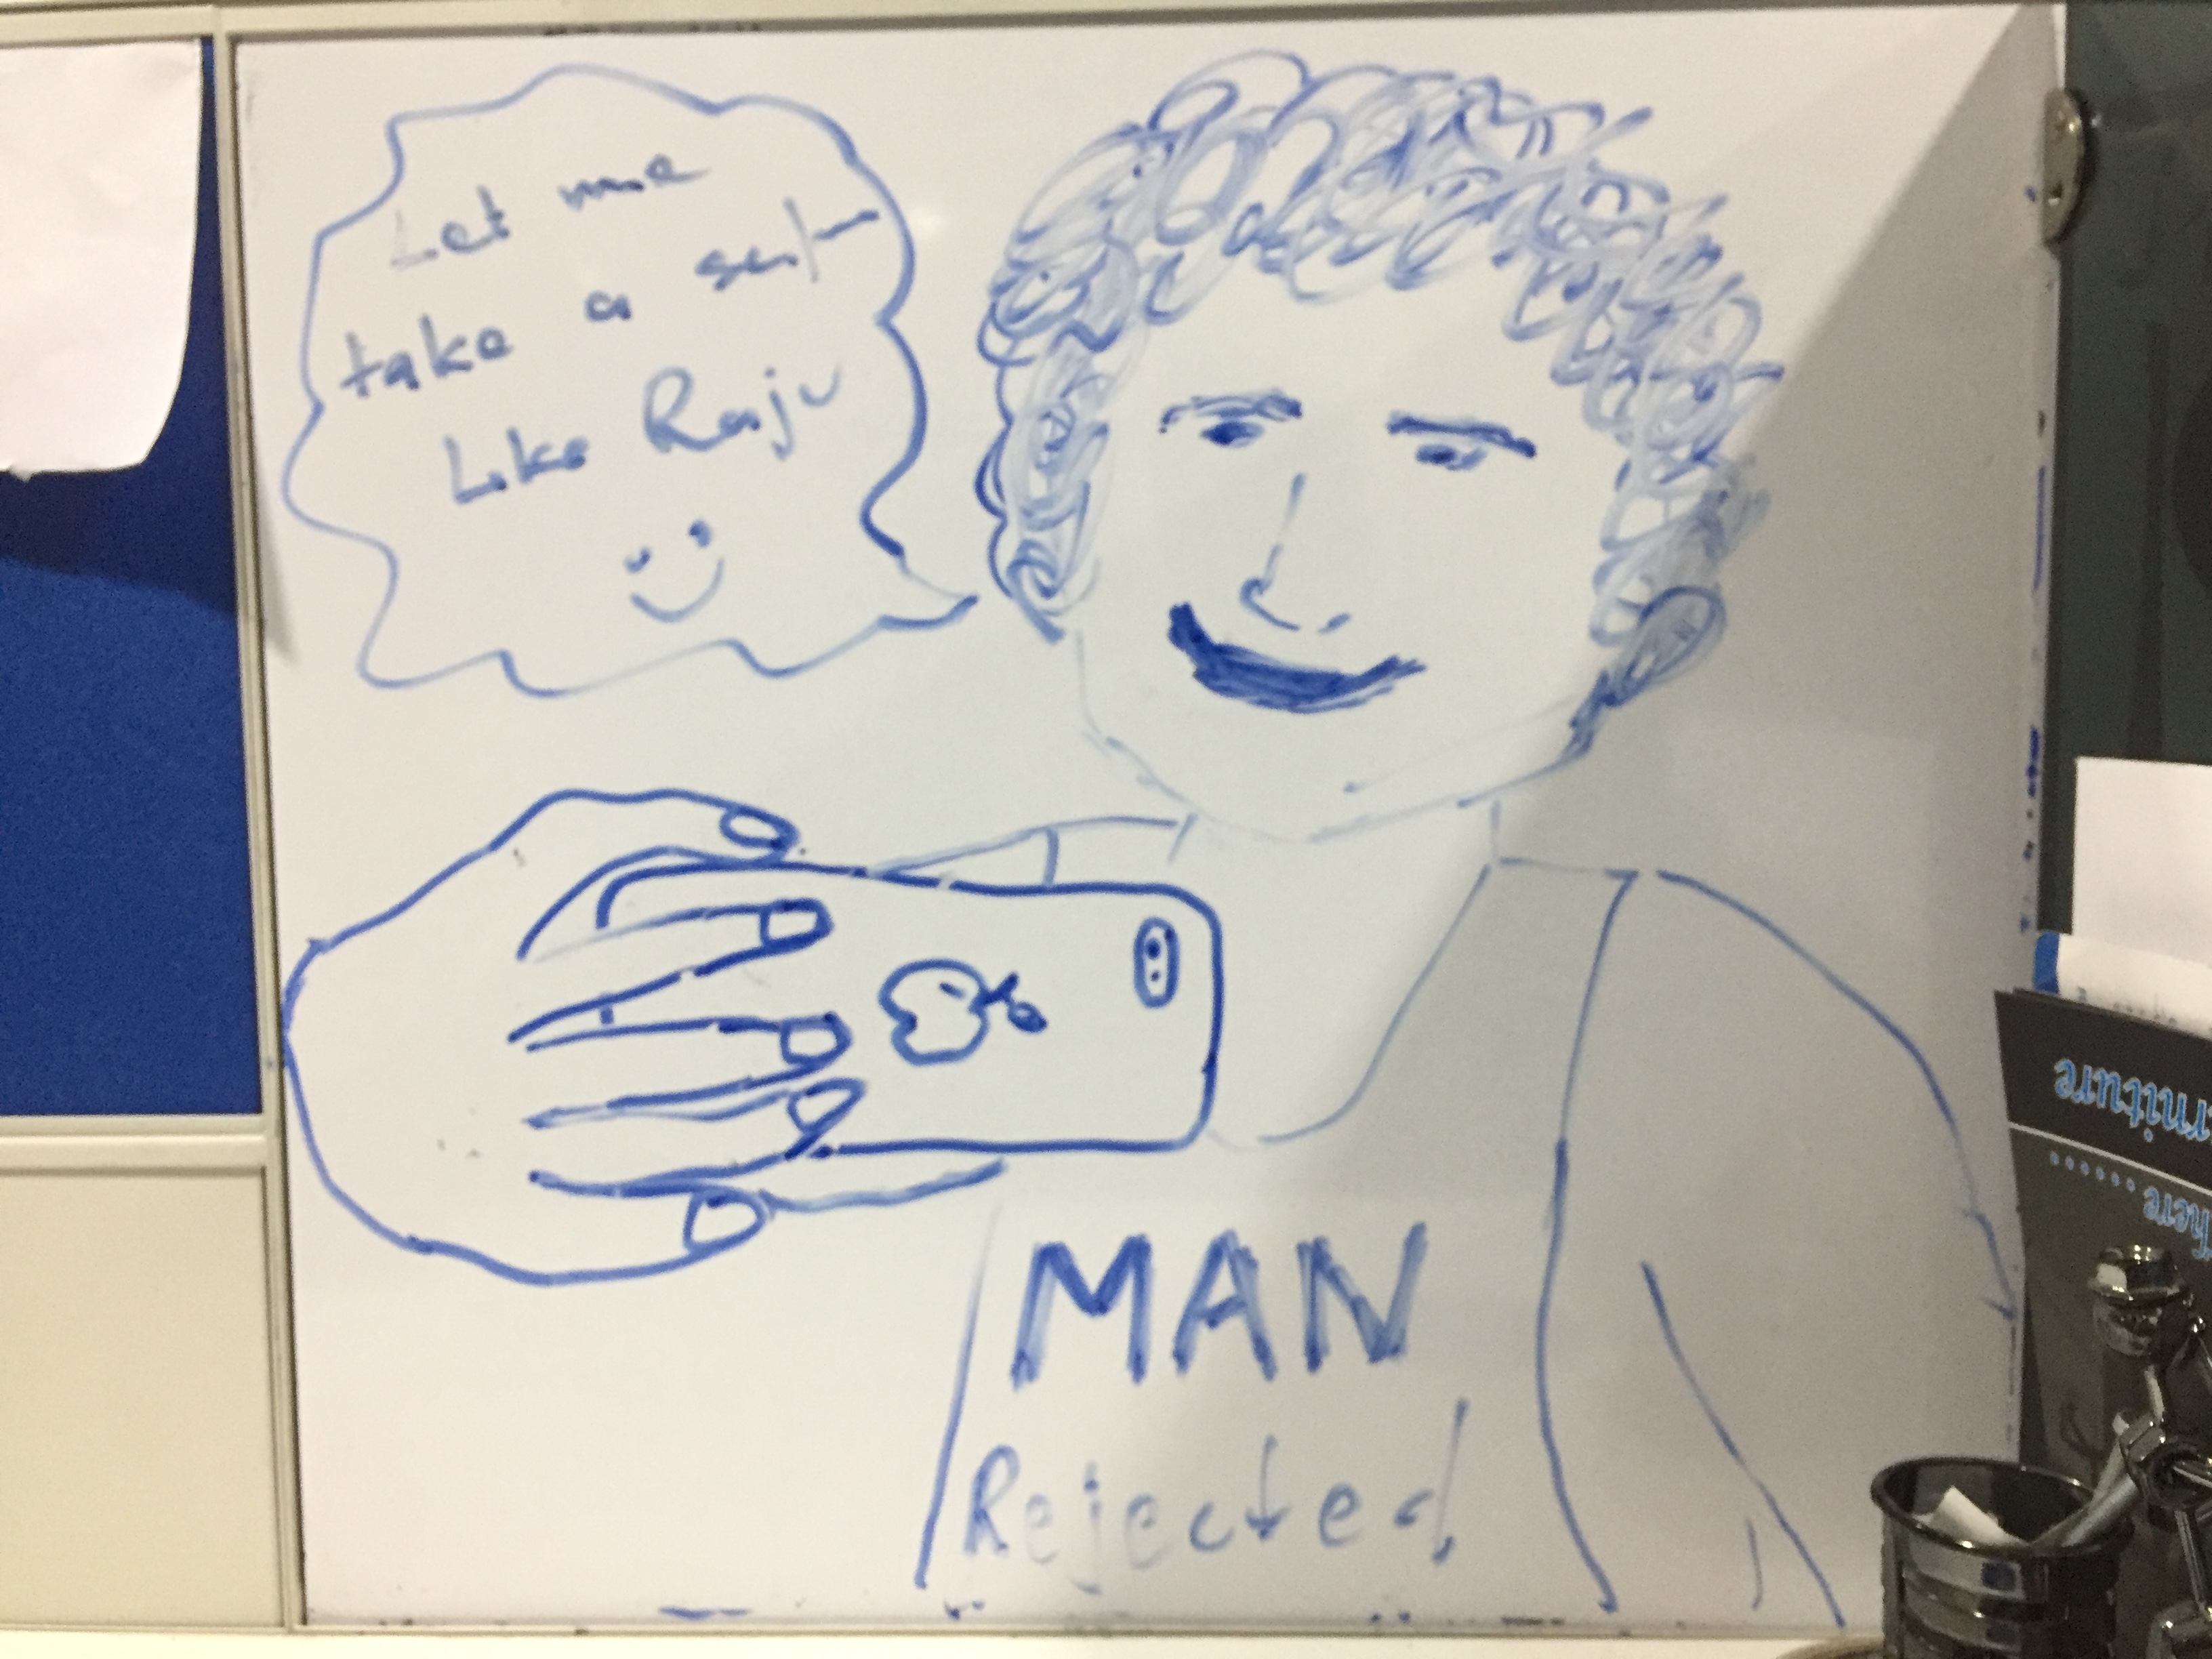 Let me
take a self
Like Raju
MAN
Rejected
rniture
here ...